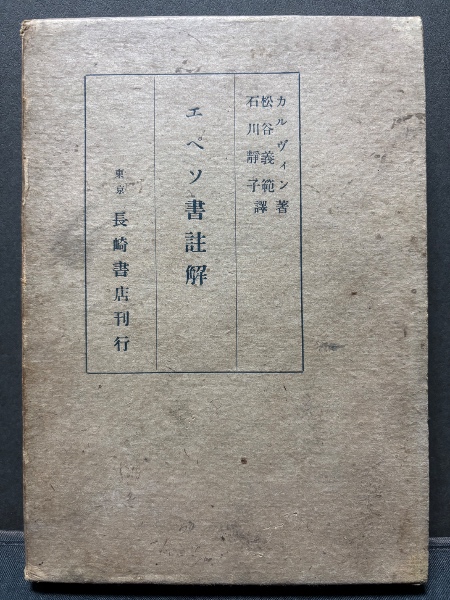 カルヴィン著
松谷義範
石川靜子譯
エペソ書註解
東京 長崎書店刊行